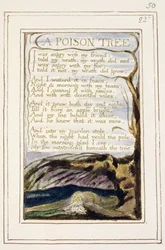 50
A POISON TREE
I was angry with my friend:
I told my wrath, my wrath did end.
I was angry with my foe:
I told it not, my wrath did grow.
And I waterd it in fears,
Night & morning with my tears:
And I sunned it with smiles,
And with soft deceitful wiles.
And it grew both day and night,
Till it bore an apple bright.
And my foe beheld it shine,
And he knew that it was mine.
And into my garden stole.
When the night had veild the pole;
In the morning glad I see,
My foe outstretchd beneath the tree.